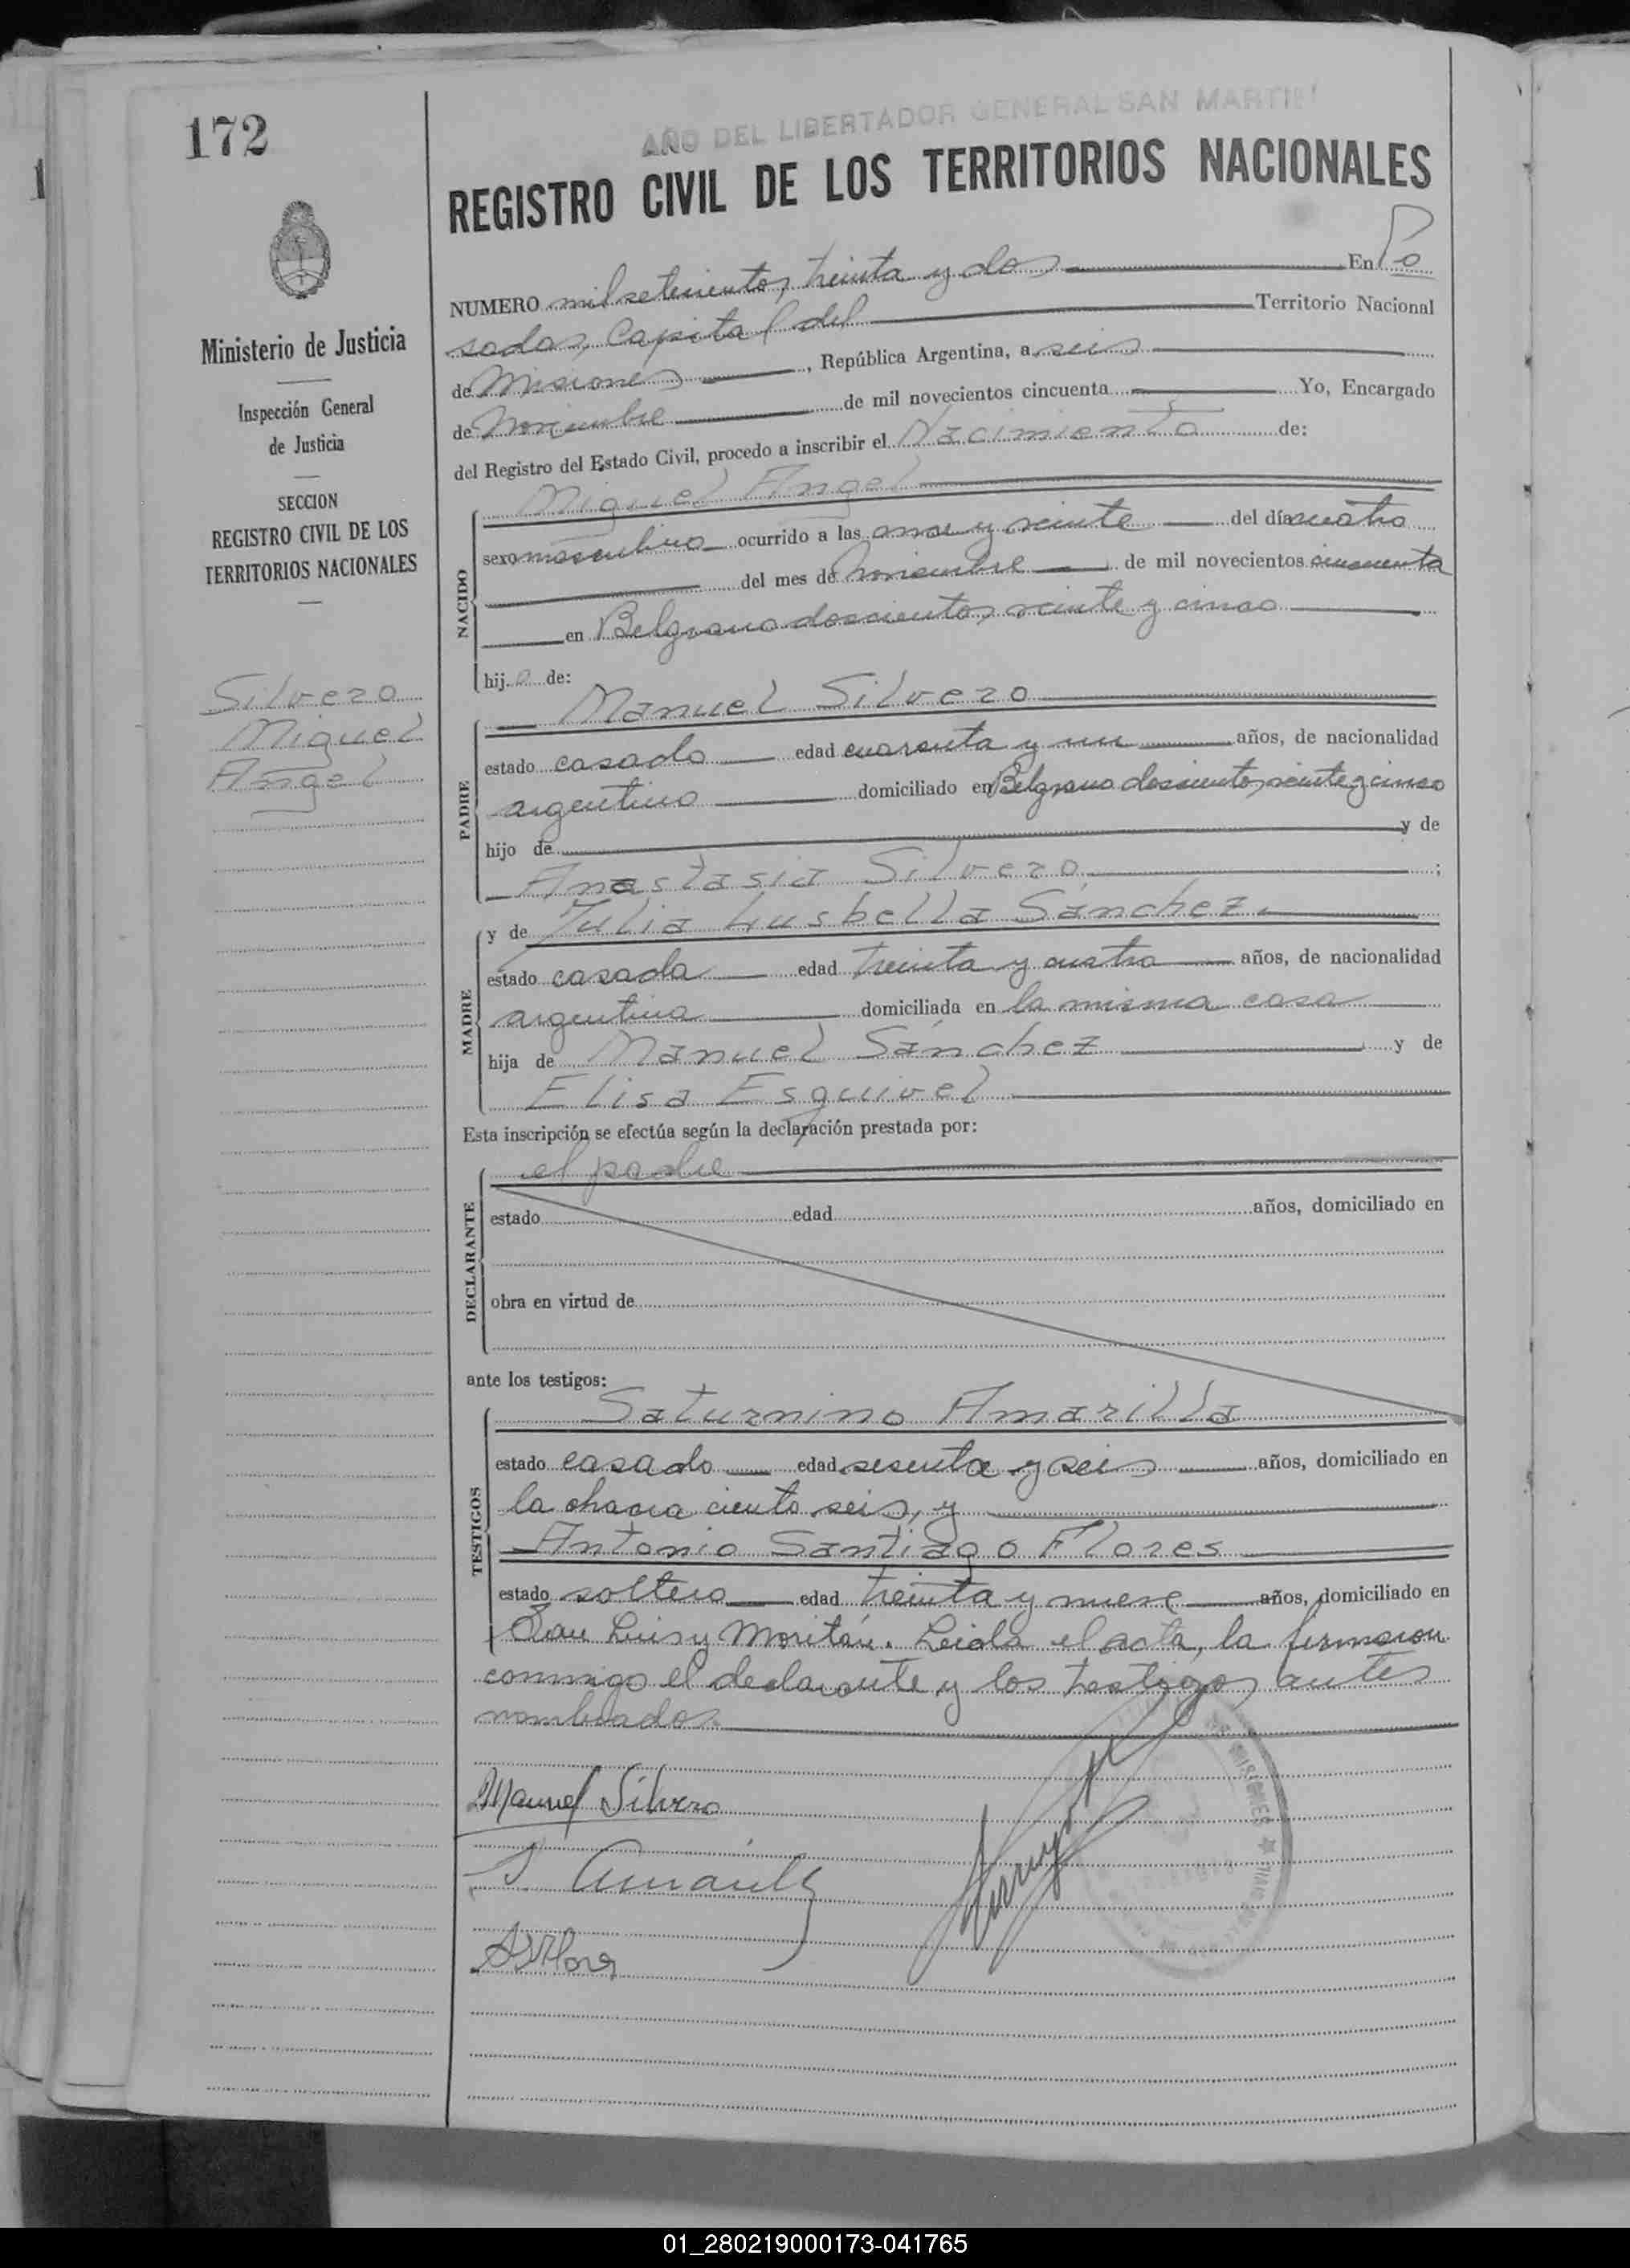 172
AÑO DEL LIBERTADOR GENERAL SAN MARTIN
REGISTRO CIVIL DE LOS TERRITORIOS NACIONALES
Ministerio de Justicia
Inspección General
de Justicia
SECCION
REGISTRO CIVIL DE LOS
TERRITORIOS NACIONALES
Silvero
Miguel
Angel
NUMERO mil setecientos treinta y dos En Po
sadas, Capital del Territorio Nacional
de Misiones, República Argentina, a seis
de Noviembre de mil novecientos cincuenta Yo, Encargado
del Registro del Estado Civil, procedo a inscribir el Nacimiento de:
NACIDO
Miguel Angel
sexo masculino ocurrido a las once y veinte del día cuatro
del mes de Noviembre de mil novecientos cincuenta
en Belgrano doscientos veinte y cinco
hij o de:
PADRE
Manuel Silvero
estado casado edad cuarenta y un años, de nacionalidad
argentino domiciliado en Belgrano doscientos veinte y cinco
hijo de y de
Anastasia Silvero ;
MADRE
y de Julia Lusbella Sánchez
estado casada edad treinta y cuatro años, de nacionalidad
argentina domiciliada en la misma casa
hija de Manuel Sánchez y de
Elisa Esquivel
Esta inscripción se efectúa según la declaración prestada por:
DECLARANTE
el padre
estado edad años, domiciliado en
obra en virtud de
ante los testigos:
TESTIGOS
Saturnino Amarilla
estado casado edad sesenta y seis años, domiciliado en
la chacra ciento seis, y
Antonio Santiago Flores
estado soltero edad treinta y nueve años, domiciliado en
San Luis y Moritán. Leida el acta, la firmaron
conmigo el declarante y los testigos antes
nombrados.
Manuel Silvero
S Amarilla
ASFlores
MISIONES
01_280219000173-041765